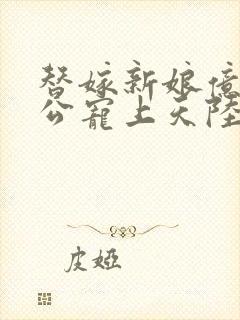 替嫁新娘億
公寵上天陸
皮婭